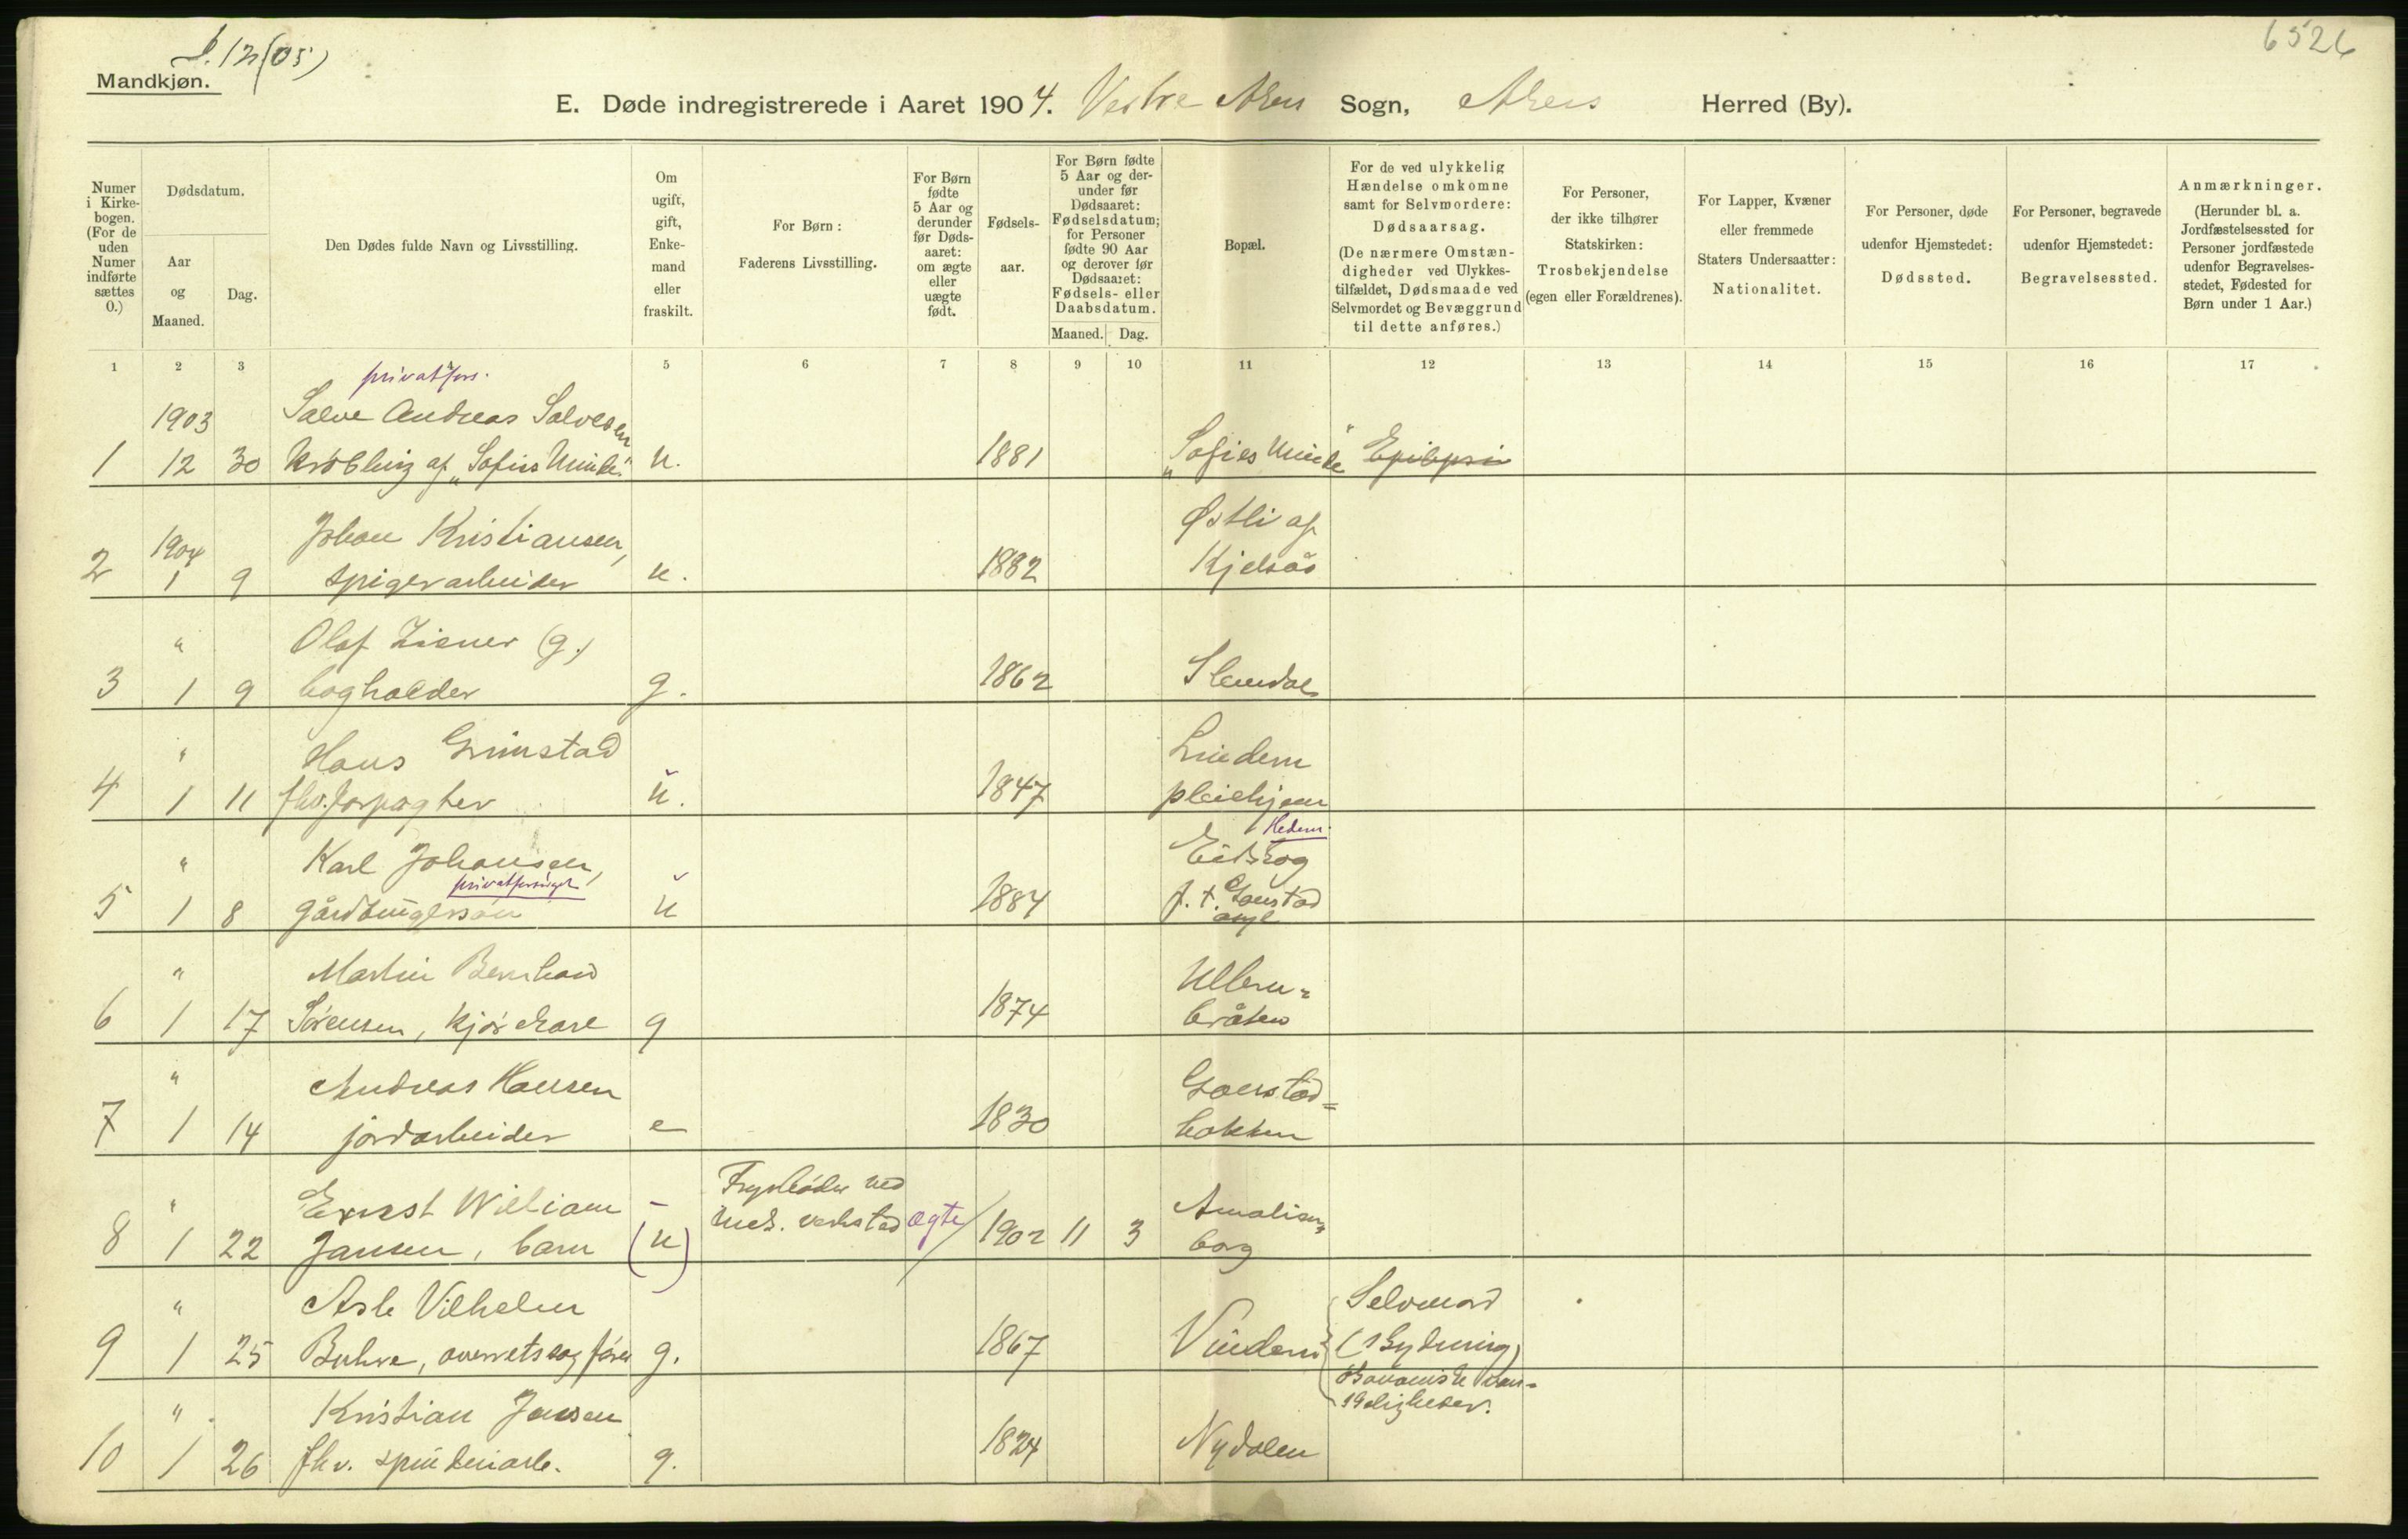 6526
12(05)
Mandkjøn.
E. Døde indregistrerede i Aaret 1904. Vestre Akers Sogn, Akers Herred (By).
Numer i Kirke-bogen. (For de uden Numer indførte sættes 0.)
Dødsdatum.
Aar og Maaned.
Dag.
Den Dødes fulde Navn og Livsstilling.
Om ugift, gift, Enke-mand eller fraskilt.
For Børn: Faderens Livsstilling.
For Børn fødte 5 Aar og derunder før Døds-aaret: om ægte eller uægte født.
Fødsels-aar.
For Børn fødte 5 Aar og der-under før Dødsaaret: Fødselsdatum; for Personer fødte 90 Aar og derover før Dødsaaret: Fødsels- eller Daabsdatum.
Maaned. Dag.
Bopæl.
For de ved ulykkelig Hændelse omkomne samt for Selvmordere: Dødsaarsag. (De nærmere Omstæn-digheder ved Ulykkes-tilfældet, Dødsmaade ved Selvmordet og Bevæggrund til dette anføres.)
For Personer, der ikke tilhører Statskirken: Trosbekjendelse (egen eller Forældrenes).
For Lapper, Kvæner eller fremmede Staters Undersaatter: Nationalitet.
For Personer, døde udenfor Hjemstedet: Dødssted.
For Personer, begravede udenfor Hjemstedet: Begravelsessted.
Anmærkninger. (Herunder bl. a. Jordfæstelsessted for Personer jordfæstede udenfor Begravelses-stedet, Fødested for Børn under 1 Aar.)
1 2 3 4 5 6 7 8 9 10 11 12 13 14 15 16 17
privatfors.
1903 Salve Andreas Salvesen
1 12 30 krøbling af „Sofies Minde" u. 1881 „Sofies Minde" Epilepsi
1904 Johan Kristiansen, Østli af
2 1 9 spigerarbeider u. 1882 Kjelsås
" Olaf Zisner (g.)
3 1 9 bogholder g. 1862 Slemdal
" Hans Grimstad Lindern
4 1 11 fhv. forpagter u. 1847 pleiehjem
Hedem.
" Karl Johansen, Eidskog
privatforsørget
5 1 8 gårdbrugerssøn u 1884 f. t. Gaustad asyl
" Martin Bernhard Ullern-
6 1 17 Sørensen, kjørekare g 1874 bråten
" Andreas Hansen Gaustad-
7 1 14 jordarbeider e 1830 bakken
" Ernst William - Fyrbøder ved Amalien-
8 1 22 Jansen, barn (u) mek. verksted ægte 1902 11 3 borg
" Asle Vilhelm Selvmord
9 1 25 Buhre, overretssagfører g. 1867 Vindern (skydning)
økonomiske van-
skeligheder.
" Kristian Jensen
10 1 26 fhv. spinderiarb. g. 1824 Nydalen